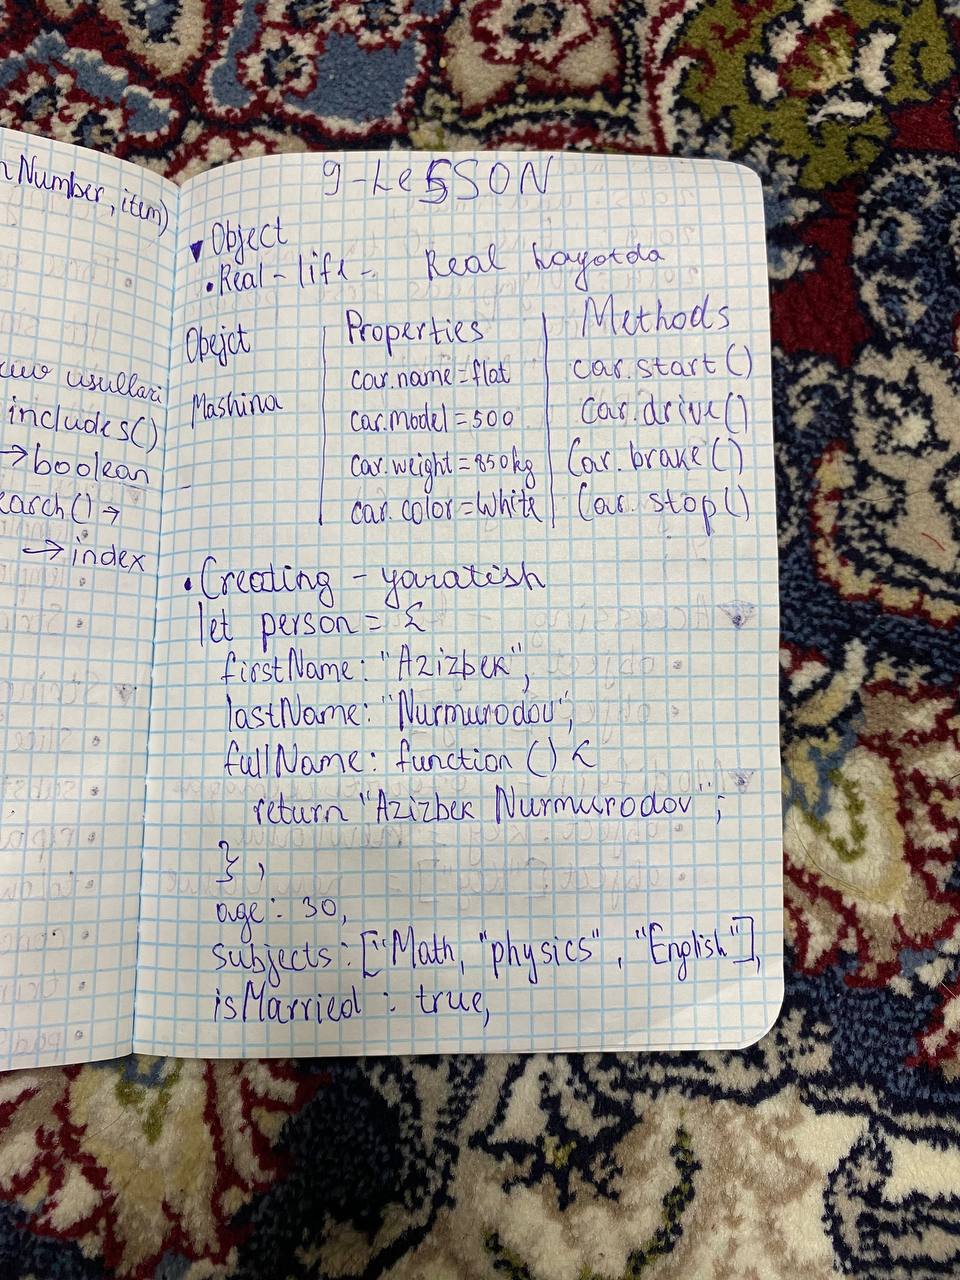 n Number, item)
usullari
includes()
→ boolean
earch() →
→ index
9-LeSSON
▾ Object
• Real - life - Real hayotda
Obejct | Properties | Methods
Mashina | car.name = flat | car.start()
car.model = 500 | car.drive()
car.weight = 850kg | Car.brake()
car.color = White | Car.stop()
• Creating - yaratish
let person = {
firstName: "Azizbek",
lastName: "Nurmurodov",
fullName: function () {
return "Azizbek Nurmurodov";
},
age: 30,
subjects: ["Math, "physics", "English"],
isMarried: true,